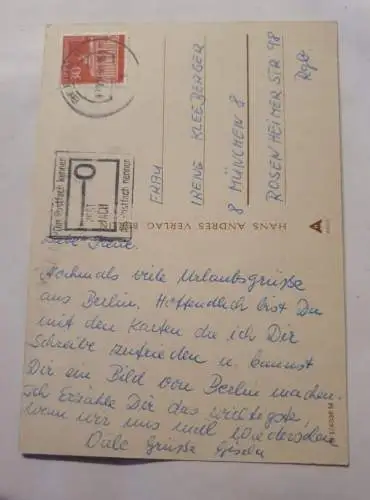 30
Ein Postfach kennen
Postfach nennen
HANS ANDRES VERLAG BERLIN
FRAU
IRENE KLEEBERGER
8 MÜNCHEN 8
ROSENHEIMER STR 98
Liebe Irene.
Nochmals viele Urlaubsgrüße
aus Berlin. Hoffendlich bist Du
mit den Karten die ich Dir
Schreibe zufrieden u. kannst
Dir ein Bild von Berlin machen.
Ich Erzähle Dir das wichtigste,
wenn wir uns mal Wiedersehen
Viele Grüße Gisela